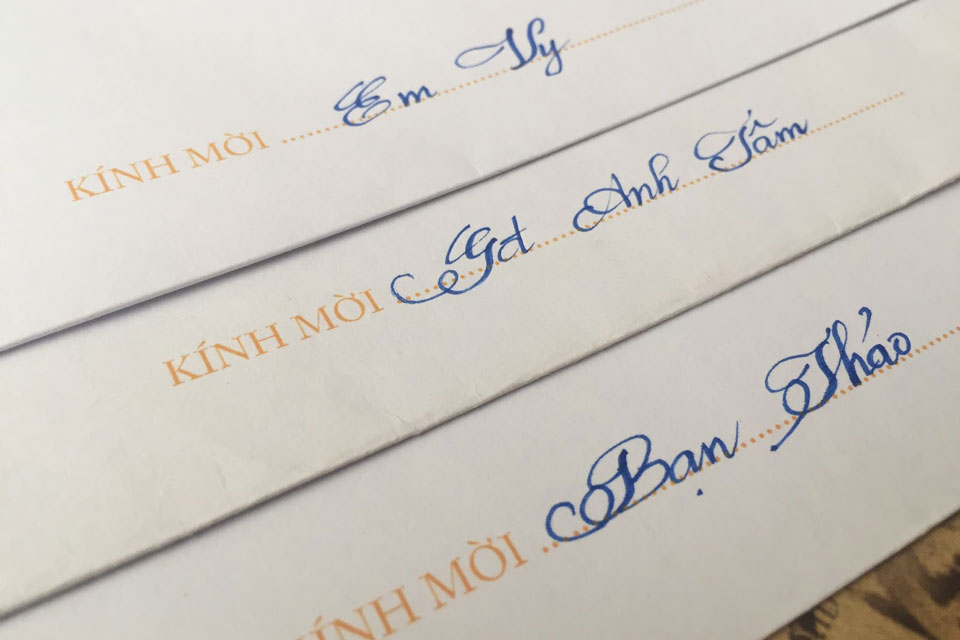 KÍNH MỜI ........ Em Vy
KÍNH MỜI ........ Gđ Anh Tâm
KÍNH MỜI ........ Bạn Thảo